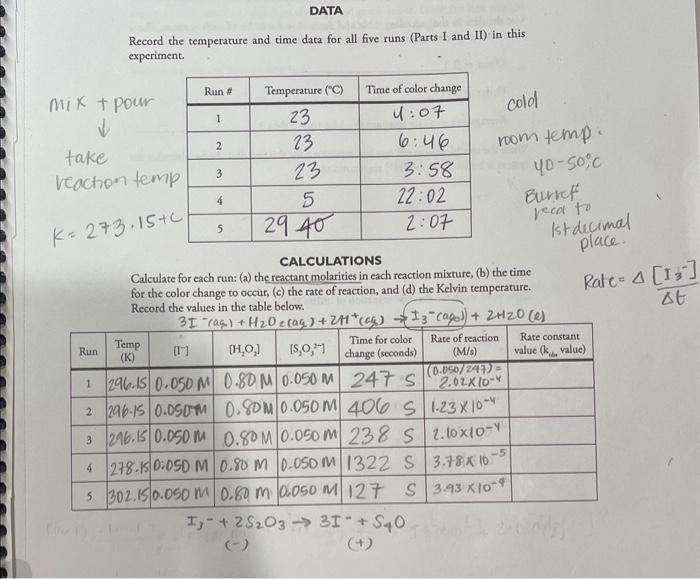 DATA
Record the temperature and time data for all five runs (Parts I and II) in this
experiment.
mix + pour
↓
take
reaction temp
K = 273.15+C
Run # Temperature (°C) Time of color change
1 23 4:07
2 23 6:46
3 23 3:58
4 5 22:02
5 29 40 2:07
cold
room temp.
40-50°C
Burret
read to
1st decimal
place.
CALCULATIONS
Calculate for each run: (a) the reactant molarities in each reaction mixture, (b) the time
for the color change to occur, (c) the rate of reaction, and (d) the Kelvin temperature.
Record the values in the table below.
Rate = Δ [I3⁻]
Δt
3I⁻(aq) + H2O2(aq) + 2H⁺(aq) → I3⁻(aq) + 2H2O(l)
Run Temp (K) [I⁻] [H₂O₂] [S₂O₃²⁻] Time for color change (seconds) Rate of reaction (M/s) Rate constant value (k value)
1 296.15 0.050 M 0.80 M 0.050 M 247 S (0.050/247)= 2.02X10⁻⁴
2 296.15 0.050M 0.80M 0.050 M 406 S 1.23 X10⁻⁴
3 296.15 0.050 M 0.80 M 0.050 M 238 S 2.10x10⁻⁴
4 278.15 0.050 M 0.80 M 0.050 M 1322 S 3.78X 10⁻⁵
5 302.15 0.050 M 0.80 M 0.050 M 127 S 3.93 X10⁻⁴
I3⁻ + 2S2O3 → 3I⁻ + S4O
(-) (+)